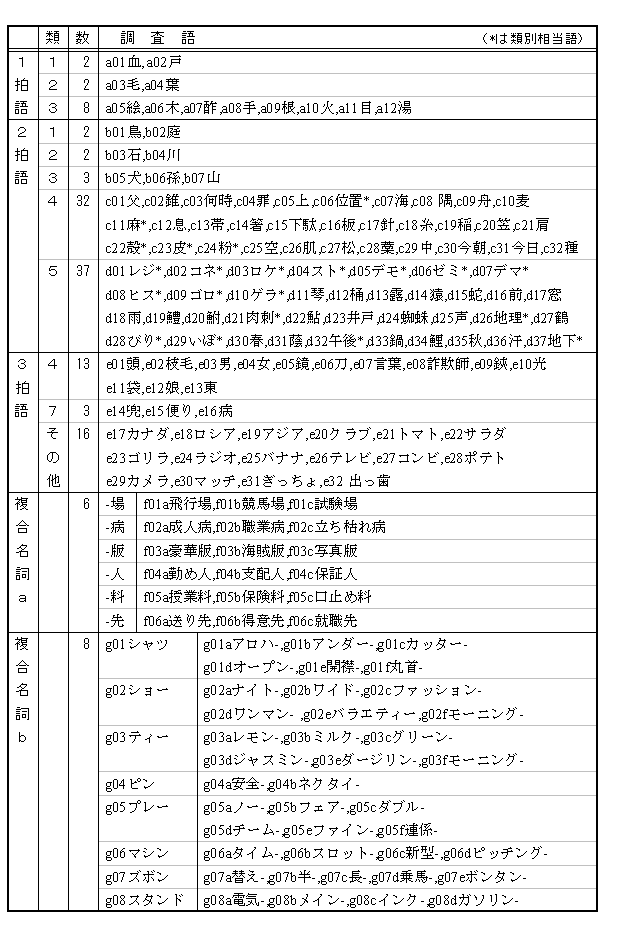 類 数 調 査 語 (*は類別相当語)
1拍語 1 2 a01血,a02戸
2 2 a03毛,a04葉
3 8 a05絵,a06木,a07酢,a08手,a09根,a10火,a11目,a12湯
2拍語 1 2 b01鳥,b02庭
2 2 b03石,b04川
3 3 b05犬,b06孫,b07山
4 32 c01父,c02錐,c03何時,c04罪,c05上,c06位置*,c07海,c08 隅,c09舟,c10麦
c11麻*,c12息,c13帯,c14箸,c15下駄,c16板,c17針,c18糸,c19稲,c20笠,c21肩
c22殻*,c23皮*,c24粉*,c25空,c26肌,c27松,c28藁,c29中,c30今朝,c31今日,c32種
5 37 d01レジ*,d02コネ*,d03ロケ*,d04スト*,d05デモ*,d06ゼミ*,d07デマ*
d08ヒス*,d09ゴロ*,d10ゲラ*,d11琴,d12桶,d13露,d14猿,d15蛇,d16前,d17窓
d18雨,d19鱧,d20鮒,d21肉刺*,d22鮎,d23井戸,d24蜘蛛,d25声,d26地理*,d27鶴
d28びり*,d29いぼ*,d30春,d31蔭,d32午後*,d33鍋,d34鯉,d35秋,d36汗,d37地下*
3拍語 4 13 e01頭,e02枝毛,e03男,e04女,e05鏡,e06刀,e07言葉,e08詐欺師,e09鋏,e10光
e11袋,e12娘,e13東
7 3 e14兜,e15便り,e16病
その他 16 e17カナダ,e18ロシア,e19アジア,e20クラブ,e21トマト,e22サラダ
e23ゴリラ,e24ラジオ,e25バナナ,e26テレビ,e27コンビ,e28ポテト
e29カメラ,e30マッチ,e31ぎっちょ,e32 出っ歯
複合名詞a 6 -場 f01a飛行場,f01b競馬場,f01c試験場
-病 f02a成人病,f02b職業病,f02c立ち枯れ病
-版 f03a豪華版,f03b海賊版,f03c写真版
-人 f04a勤め人,f04b支配人,f04c保証人
-料 f05a授業料,f05b保険料,f05c口止め料
-先 f06a送り先,f06b得意先,f06c就職先
複合名詞b 8 g01シャツ g01aアロハ-,g01bアンダー-,g01cカッター-
g01dオープン-,g01e開襟-,g01f丸首-
g02ショー g02aナイト-,g02bワイド-,g02cファッション-
g02dワンマン- ,g02eバラエティー,g02fモーニング-
g03ティー g03aレモン-,g03bミルク-,g03cグリーン-
g03dジャスミン-,g03eダージリン-,g03fモーニング-
g04ピン g04a安全-,g04bネクタイ-
g05プレー g05aノー-,g05bフェア-,g05cダブル-
g05dチーム-,g05eファイン-,g05f連係-
g06マシン g06aタイム-,g06bスロット-,g06c新型-,g06dピッチング-
g07ズボン g07a替え-,g07b半-,g07c長-,g07d乗馬-,g07eボンタン-
g08スタンド g08a電気-,g08bメイン-,g08cインク-,g08dガソリン-